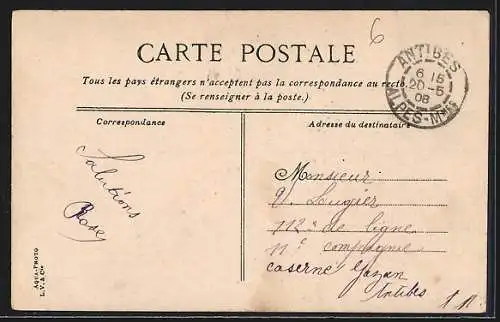 6
CARTE POSTALE
Tous les pays étrangers n'acceptent pas la correspondance au recto.
(Se renseigner à la poste.)
ANTIBES
6 15
20-5
08
ALPES-Mmes
Correspondance
Adresse du destinataire
Salutations
Monsieur
Lougier
112e de ligne
11e compagnie
caserne Gazan
Antibes
AQUA-PHOTO
L. V. & Cie